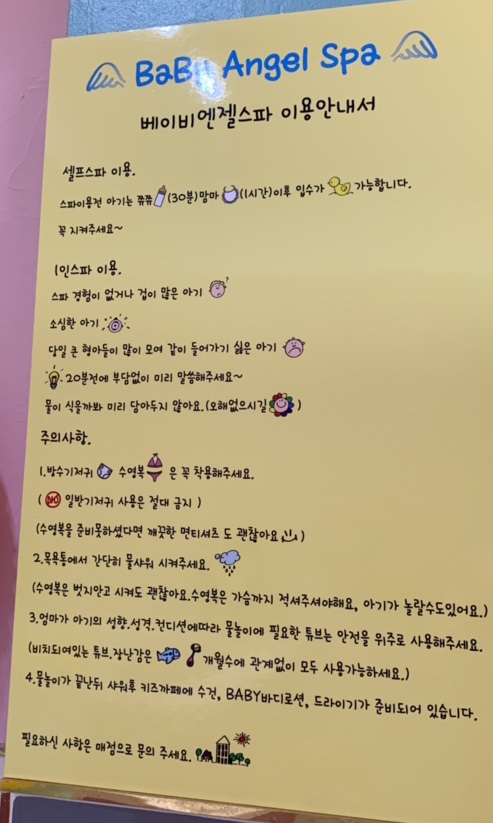 BaBy Angel Spa
베이비엔젤스파 이용안내서
셀프스파 이용.
스파이용전 아기는 쮸쮸(30분)맘마(1시간)이후 입수가 가능합니다.
꼭 지켜주세요~
1인스파 이용.
스파 경험이 없거나 겁이 많은 아기
소심한 아기
당일 큰 형아들이 많이 모여 같이 들어가기 싫은 아기
20분전에 부담없이 미리 말씀해주세요~
물이 식을까봐 미리 담아두지 않아요.(오해없으시길)
주의사항.
1.방수기저귀 수영복 은 꼭 착용해주세요.
(NO 일반기저귀 사용은 절대 금지)
(수영복을 준비못하셨다면 깨끗한 면티셔츠 도 괜찮아요)
2.목욕통에서 간단히 물샤워 시켜주세요.
(수영복은 벗지안고 시켜도 괜찮아요.수영복은 가슴까지 적셔주셔야해요, 아기가 놀랄수도있어요.)
3.엄마가 아기의 성향.성격.컨디션에따라 물놀이에 필요한 튜브는 안전을 위주로 사용해주세요.
(비치되여있는 튜브.장난감은 개월수에 관계없이 모두 사용가능하세요.)
4.물놀이가 끝난뒤 샤워후 키즈까페에 수건, BABY바디로션, 드라이기가 준비되어 있습니다.
필요하신 사항은 매점으로 문의 주세요.